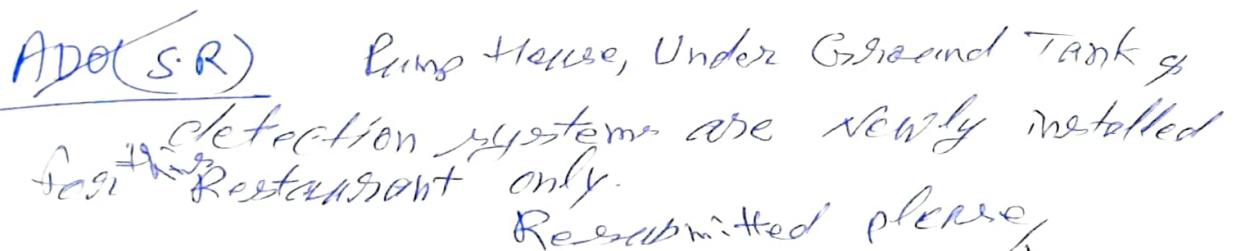 ADO(S.R) Pump House, Under Ground Tank &
detection systems are Newly installed
for this Restaurant only.
Resubmitted please,